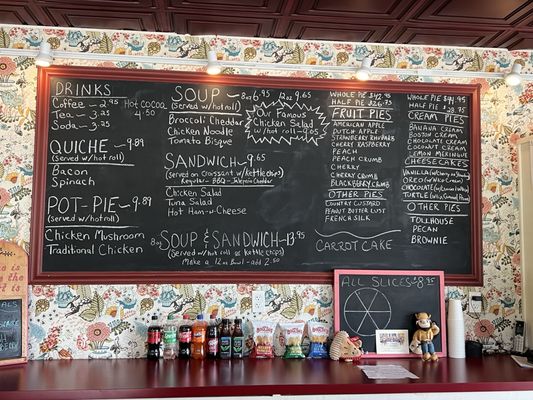 DRINKS
Coffee - 2.95 Hot cocoa
Tea - 3.25 4.50
Soda - 3.25
QUICHE - 9.89
(Served w/ hot roll)
Bacon
Spinach
POT-PIE - 9.89
(Served w/ hot roll)
Chicken Mushroom
Traditional Chicken
SOUP - 8oz 6.95 12oz 9.65
(Served w/ hot roll)
Broccoli Cheddar
Chicken Noodle
Tomato Bisque
Our Famous
Chicken Salad
w/ hot roll - 9.05
SANDWICH - 9.65
(Served on Croissant w/ Kettle chips)
Regular - BBQ - Jalapeño Cheddar
Chicken Salad
Tuna Salad
Hot Ham-n-Cheese
8oz SOUP & SANDWICH - 13.95
(Served w/ hot roll or Kettle chips)
Make a 12oz Bowl - add 2.50
WHOLE PIE $42.95
HALF PIE $26.75
FRUIT PIES
AMERICAN APPLE
DUTCH APPLE
STRAWBERRY RHUBARB
CHERRY RASPBERRY
PEACH
PEACH CRUMB
CHERRY
CHERRY CRUMB
BLACKBERRY CRUMB
OTHER PIES
COUNTRY CUSTARD
PEANUT BUTTER LUST
FRENCH SILK
CARROT CAKE
WHOLE PIE $44.95
HALF PIE $28.95
CREAM PIES
BANANA CREAM
CHOCOLATE CREAM
COCONUT CREAM
LEMON MERINGUE
CHEESECAKES
VANILLA
OREO
CHOCOLATE
TURTLE
OTHER PIES
TOLLHOUSE
PECAN
BROWNIE
ALL SLICES $8.95